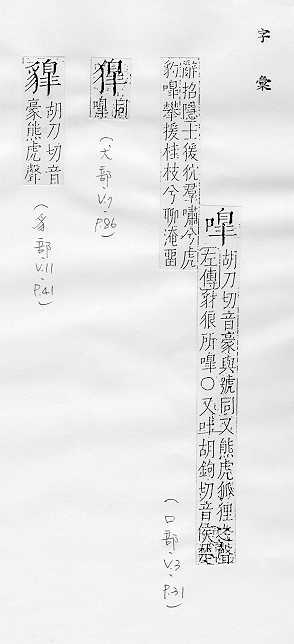 字彙
嘷
胡刀切音豪與號同又熊虎狐狸之聲
左傳豺狼所嘷○又叶胡鉤切音侯楚
辭招隱士猨狖羣嘯兮虎
豹嘷攀援桂枝兮聊淹畱
(口部.V.3.P.31)
獋
同
嘷
(犬部.V.7.P.86)
胡刀切音
豪熊虎聲
(豸部.V.11.P.41)